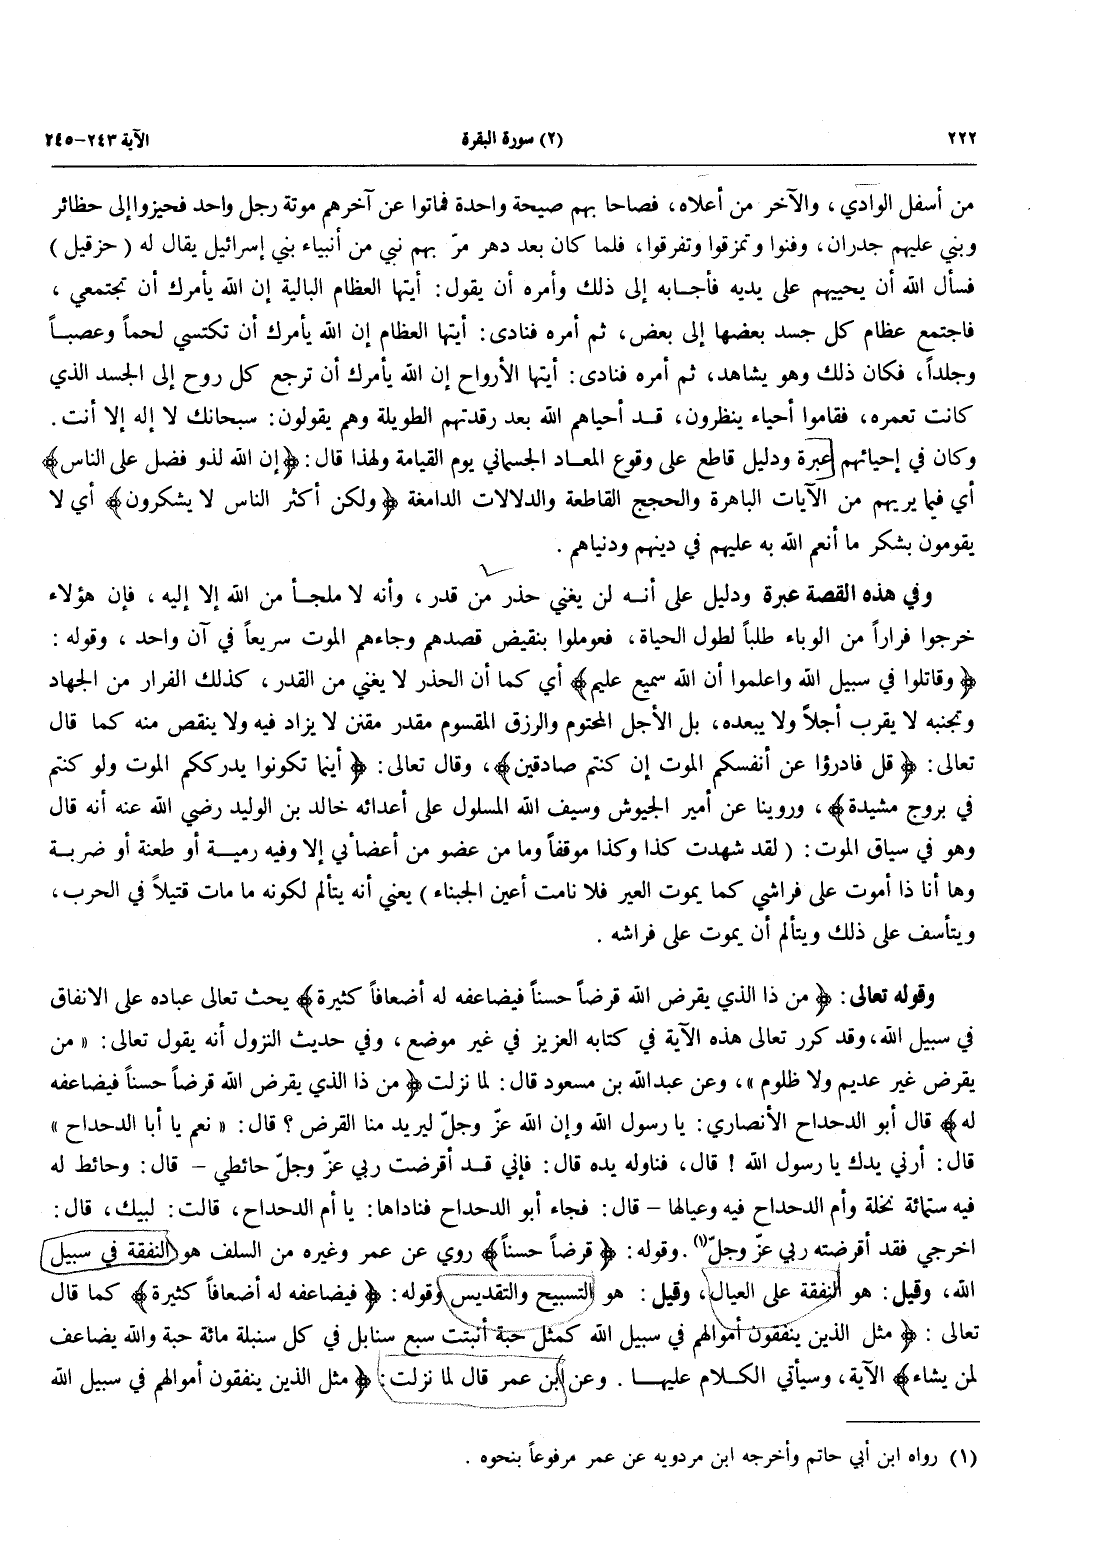 ٢٢٢ (٢) سورة البقرة الآية ٢٤٣-٢٤٥
من أسفل الوادي، والآخر من أعلاه، فصاحا بهم صيحة واحدة فماتوا عن آخرهم موتة رجل واحد فحيزوا إلى حظائر
وبني عليهم جدران، وفنوا وتمزقوا وتفرقوا، فلما كان بعد دهر مرّ بهم نبي من أنبياء بني إسرائيل يقال له (حزقيل)
فسأل الله أن يحييهم على يديه فأجابه إلى ذلك وأمره أن يقول: أيتها العظام البالية إن الله يأمرك أن تجتمعي،
فاجتمع عظام كل جسد بعضها إلى بعض، ثم أمره فنادى: أيتها العظام إن الله يأمرك أن تكتسي لحماً وعصباً
وجلداً، فكان ذلك وهو يشاهد، ثم أمره فنادى: أيتها الأرواح إن الله يأمرك أن ترجع كل روح إلى الجسد الذي
كانت تعمره، فقاموا أحياء ينظرون، قد أحياهم الله بعد رقدتهم الطويلة وهم يقولون: سبحانك لا إله إلا أنت.
وكان في إحيائهم عبرة ودليل قاطع على وقوع المعاد الجسماني يوم القيامة ولهذا قال: ﴿إن الله لذو فضل على الناس﴾
أي فيما يريهم من الآيات الباهرة والحجج القاطعة والدلالات الدامغة ﴿ولكن أكثر الناس لا يشكرون﴾ أي لا
يقومون بشكر ما أنعم الله به عليهم في دينهم ودنياهم.
وفي هذه القصة عبرة ودليل على أنه لن يغني حذر من قدر، وأنه لا ملجأ من الله إلا إليه، فإن هؤلاء
خرجوا فراراً من الوباء طلباً لطول الحياة، فعوملوا بنقيض قصدهم وجاءهم الموت سريعاً في آن واحد، وقوله:
﴿وقاتلوا في سبيل الله واعلموا أن الله سميع عليم﴾ أي كما أن الحذر لا يغني من القدر، كذلك الفرار من الجهاد
وتجنبه لا يقرب أجلاً ولا يبعده، بل الأجل المحتوم والرزق المقسوم مقدر مقنن لا يزاد فيه ولا ينقص منه كما قال
تعالى: ﴿قل فادرؤا عن أنفسكم الموت إن كنتم صادقين﴾، وقال تعالى: ﴿أينما تكونوا يدرككم الموت ولو كنتم
في بروج مشيدة﴾، وروينا عن أمير الجيوش وسيف الله المسلول على أعدائه خالد بن الوليد رضي الله عنه أنه قال
وهو في سياق الموت: (لقد شهدت كذا وكذا موقفاً وما من عضو من أعضائي إلا وفيه رمية أو طعنة أو ضربة
وها أنا ذا أموت على فراشي كما يموت العير فلا نامت أعين الجبناء) يعني أنه يتألم لكونه ما مات قتيلاً في الحرب،
ويتأسف على ذلك ويتألم أن يموت على فراشه.
وقوله تعالى: ﴿من ذا الذي يقرض الله قرضاً حسناً فيضاعفه له أضعافاً كثيرة﴾ يحث تعالى عباده على الانفاق
في سبيل الله، وقد كرر تعالى هذه الآية في كتابه العزيز في غير موضع، وفي حديث النزول أنه يقول تعالى: «من
يقرض غير عديم ولا ظلوم»، وعن عبدالله بن مسعود قال: لما نزلت ﴿من ذا الذي يقرض الله قرضاً حسناً فيضاعفه
له﴾ قال أبو الدحداح الأنصاري: يا رسول الله وإن الله عزّ وجلّ ليريد منا القرض؟ قال: «نعم يا أبا الدحداح»
قال: أرني يدك يا رسول الله! قال، فناوله يده قال: فإني قد أقرضت ربي عزّ وجلّ حائطي – قال: وحائط له
فيه ستمائة نخلة وأم الدحداح فيه وعيالها – قال: فجاء أبو الدحداح فناداها: يا أم الدحداح، قالت: لبيك، قال:
اخرجي فقد أقرضته ربي عزّ وجلّ(١). وقوله: ﴿قرضاً حسناً﴾ روي عن عمر وغيره من السلف هو النفقة في سبيل
الله، وقيل: هو النفقة على العيال، وقيل: هو التسبيح والتقديس وقوله: ﴿فيضاعفه له أضعافاً كثيرة﴾ كما قال
تعالى: ﴿مثل الذين ينفقون أموالهم في سبيل الله كمثل حبة أنبتت سبع سنابل في كل سنبلة مائة حبة والله يضاعف
لمن يشاء﴾ الآية، وسيأتي الكلام عليها. وعن ابن عمر قال لما نزلت: ﴿مثل الذين ينفقون أموالهم في سبيل الله
(١) رواه ابن أبي حاتم وأخرجه ابن مردويه عن عمر مرفوعاً بنحوه.